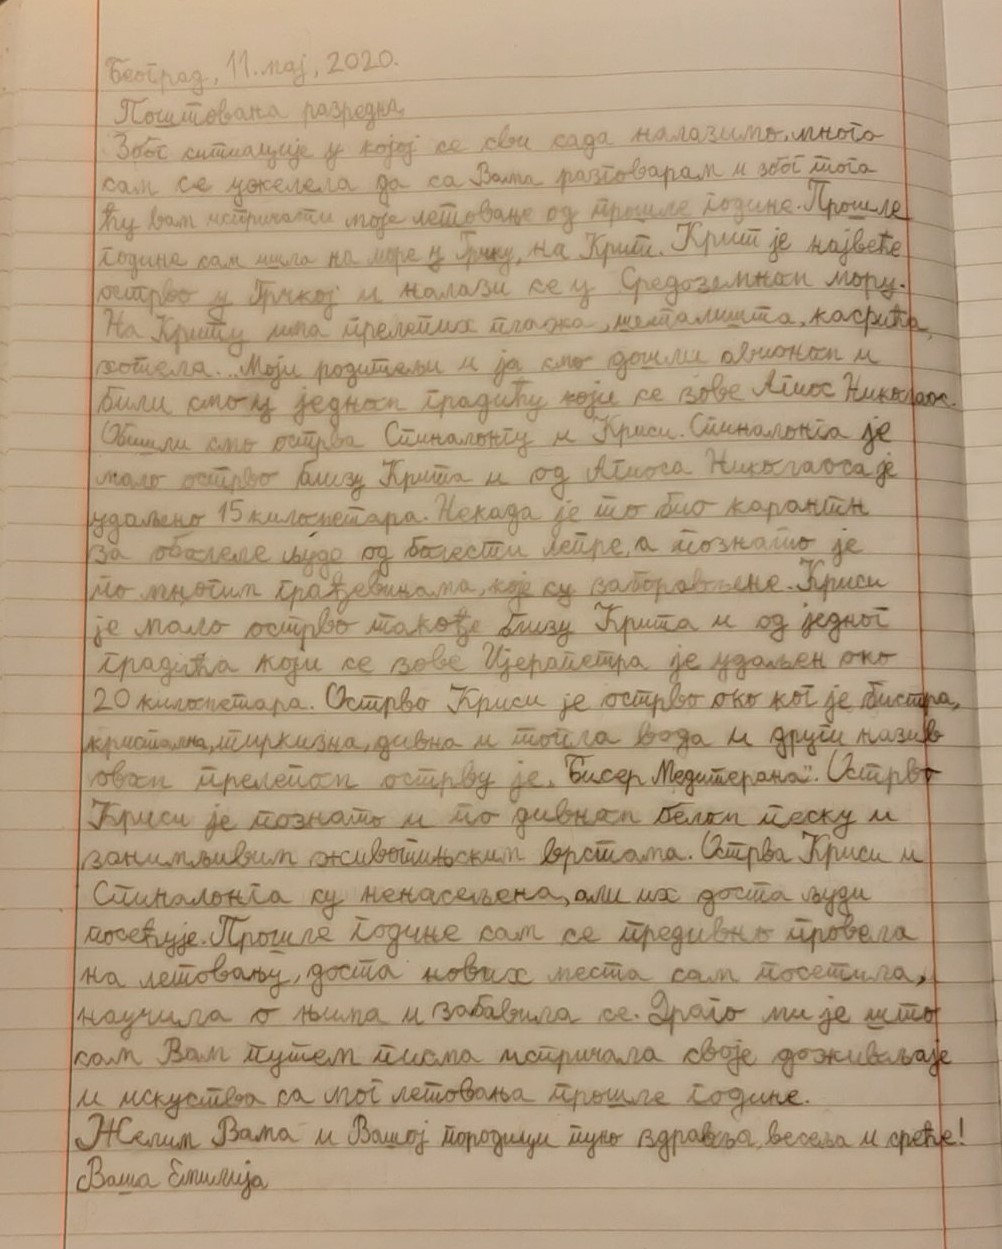 Београд, 11. мај, 2020.
Поштована разредна,
Због ситуације у којој се сви сада налазимо, много
сам се ужелела да са Вама разговарам и због тога
ћу вам испричати моје летовање од прошле године. Прошле
године сам ишла на море у Грчку, на Крит. Крит је највеће
острво у Грчкој и налази се у Средоземном мору.
На Криту има прелепих плажа, шеталишта, кафића,
хотела... Моји родитељи и ја смо дошли авионом и
били смо у једном градићу који се зове Агиос Николаос.
Обишли смо острва Спиналонгу и Криси. Спиналонга је
мало острво близу Крита и од Агиоса Николаоса је
удаљено 15 километара. Некада је то био карантин
за оболеле људе од болести лепре, а познато је
по многим грађевинама, које су заборављене. Криси
је мало острво такође близу Крита и од једног
градића који се зове Ијерапетра је удаљен око
20 километара. Острво Криси је острво око ког је бистра,
кристална, тиркизна, дивна и топла вода и други назив
овом прелепом острву је „Бисер Медитерана". Острво
Криси је познато и по дивном белом песку и
занимљивим животињским врстама. Острва Криси и
Спиналонга су ненасељена, али их доста људи
посећује. Прошле године сам се предивно провела
на летовању, доста нових места сам посетила,
научила о њима и забавила се. Драго ми је што
сам Вам путем писма испричала своје доживљаје
и искуства са мог летовања прошле године.
Желим Вама и Вашој породици пуно здравља, весеља и среће!
Ваша Емилија